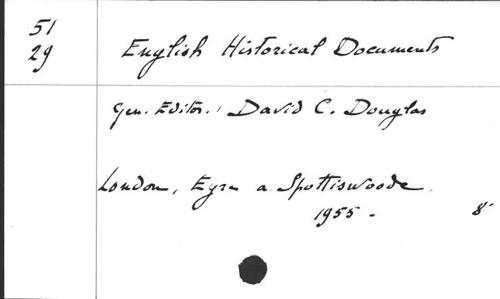 51
29
English Historical Documents
Gen. Editor: David C. Douglas
London, Eyre a. Spottiswoode.
1955 - 8°